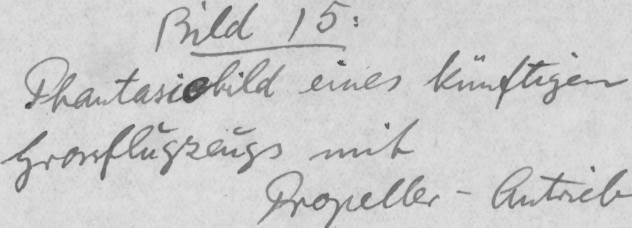 Bild 15:
Phantasiebild eines künftigen
Grossflugzeugs mit
Propeller-Antrieb